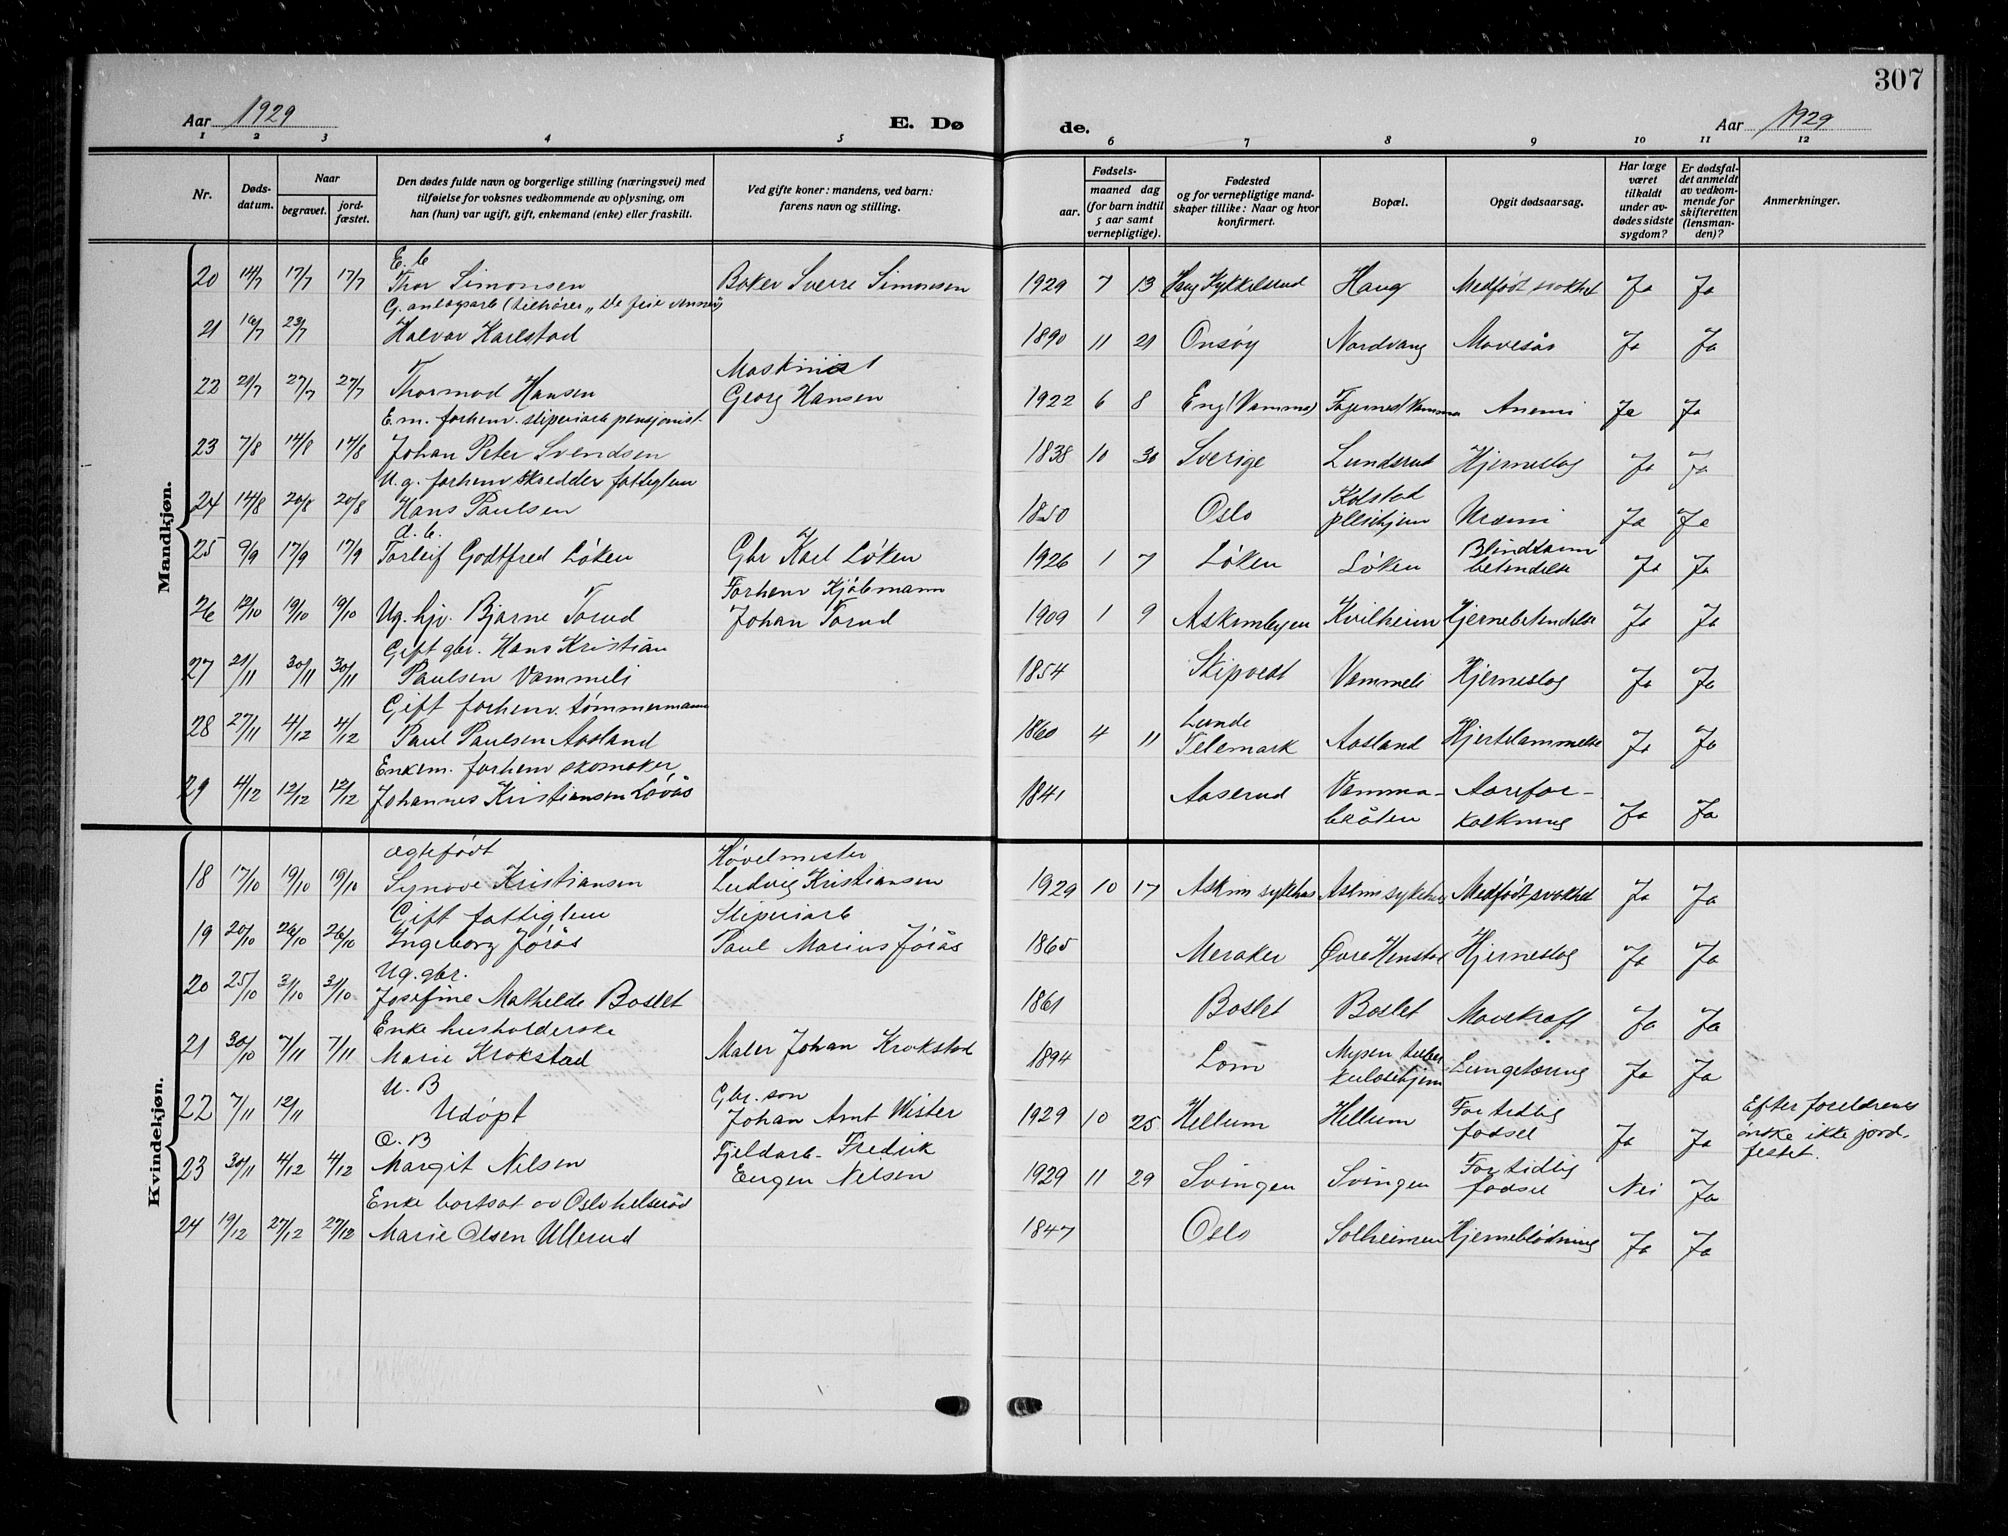 307
Aar 1929
E. Dø
de.
Aar 1929
1 2 3 4 5 6 7 8 9 10 11 12
Nr.
Døds-
datum.
Naar
begravet.
jord-
fæstet.
Den dødes fulde navn og borgerlige stilling (næringsvei) med
tilføielse for voksnes vedkommende av oplysning, om
han (hun) var ugift, gift, enkemand (enke) eller fraskilt.
Ved gifte koner: mandens, ved barn:
farens navn og stilling.
Fødsels-
aar.
maaned dag
(for barn indtil
5 aar samt
vernepligtige).
Fødested
og for vernepligtige mand-
skaper tillike: Naar og hvor
konfirmert.
Bopæl.
Opgit dødsaarsag.
Har læge
været
tilkaldt
under av-
dødes sidste
sygdom?
Er dødsfal-
det anmeldt
av vedkom-
mende for
skifteretten
(lensman-
den)?
Anmerkninger.
Mandkjøn.
E. b
20 14/7 17/7 17/7 Thor Simonsen Baker Sverre Simonsen 1929 7 13 Haug Kykkelsrud Haug Medfødt svakhet Ja Ja
G. anlegsarb (tilhører „De frie venner")
21 16/7 23/7 Halvor Karlstad 1890 11 21 Onsøy Nordvang Mavesår Ja Ja
Maskinist
22 21/7 27/7 27/7 Thormod Hansen Georg Hansen 1922 6 8 Eng (Vamma) Fagernes Vamma Anemi Ja Ja
E.m. forhenv. sliperiarb pensjonist
23 7/8 14/8 14/8 Johan Peter Svendsen 1838 10 30 Sverige Lundsrud Hjerneslag Ja Ja
U.g. forhenv skredder fattiglem
24 14/8 20/8 20/8 Hans Paulsen 1850 Oslo Kolstad
pleiehjem Uræmi Ja Ja
a. b.
25 9/9 17/9 17/9 Torleif Godtfred Løken Gbr Karl Løken 1926 1 7 Løken Løken Blindtarm
betendelse Ja Ja
Forhenv Kjøbmann
26 12/10 19/10 19/10 Ug. hjv. Bjarne Torud Johan Torud 1909 1 9 Askimbyen Kvilheim Hjernebetendelse Ja Ja
Gift gbr. Hans Kristian
27 21/11 30/11 30/11 Paulsen Vammeli 1854 Skipvedt Vammeli Hjerneslag Ja Ja
Gift forhenv. tømmermann
28 27/11 4/12 4/12 Paul Paulsen Aasland 1860 4 11 Lunde
Telemark Aasland Hjertelammelse Ja Ja
Enkem. forhenv skomaker
29 4/12 12/12 12/12 Johannes Kristiansen Løvås 1841 Aaserud Vamma-
bråten Aarefor-
kalkning Ja Ja
Kvindekjøn.
Ægtefødt Høvelmester
18 17/10 19/10 19/10 Synove Kristiansen Ludvig Kristiansen 1929 10 17 Askim sykehus Askim sykehus Medfødt svakhet Ja Ja
Gift fattiglem Sliperiarb
19 20/10 26/10 26/10 Ingeborg Jørås Paul Marius Jørås 1865 Meraker Øvre Henstad Hjerneslag Ja Ja
Ug. gbr.
20 25/10 31/10 31/10 Josefine Mathilde Boslet 1861 Boslet Boslet Mavekraft Ja Ja
Enke husholderske
21 30/10 7/11 7/11 Marie Krokstad Maler Johan Krokstad 1894 Lom Mysen tuber
kulosehjem Lungetæring Ja Ja
U. B Gbr. son
22 7/11 12/11 Udøpt Johan Arnt Wister 1929 10 25 Hellum Hellum For tidlig
fødsel Ja Ja Efter foreldrenes
ønske ikke jord-
festet.
E. B Fjeldarb. Fredrik
23 30/11 4/12 4/12 Margit Nilsen Eugen Nilsen 1929 11 29 Svingen Svingen For tidlig
fødsel Nei Ja
Enke bortsat av Oslo helseråd
24 19/12 27/12 27/12 Marie Olsen Ullerud 1847 Oslo Solheimen Hjerneblødning Ja Ja